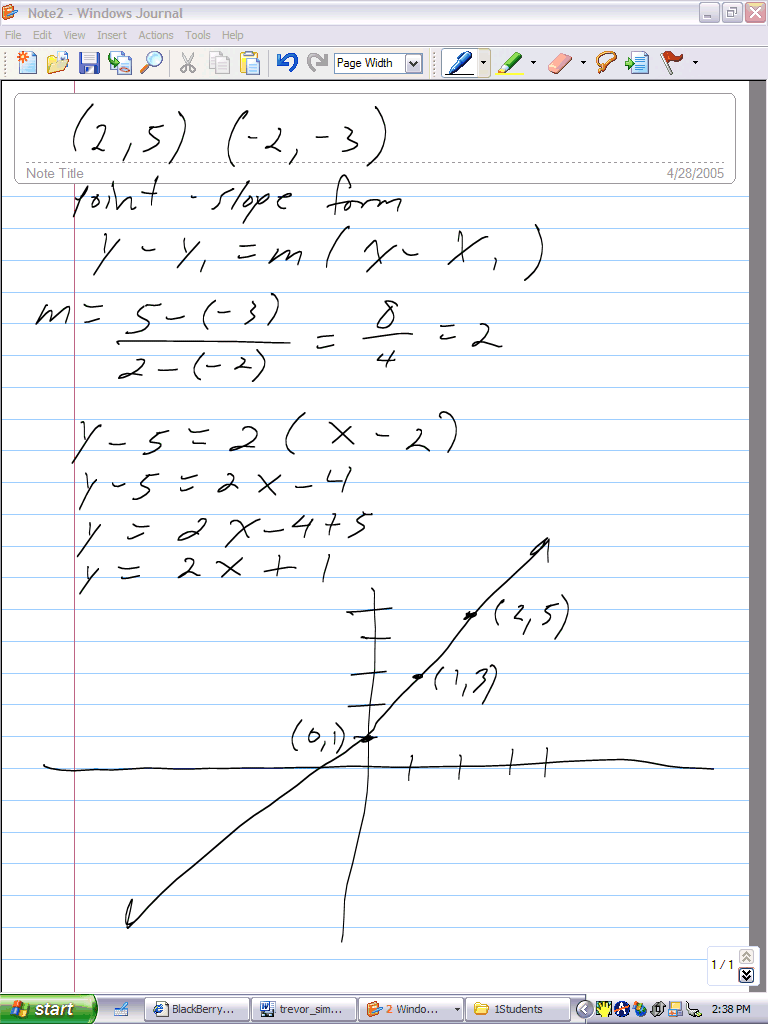 Note2 - Windows Journal
File Edit View Insert Actions Tools Help
Page Width
(2, 5) (-2, -3)
Note Title 4/28/2005
point - slope form
y - y₁ = m (x - x₁)
m = 5 - (-3) / 2 - (-2) = 8 / 4 = 2
y - 5 = 2 (x - 2)
y - 5 = 2x - 4
y = 2x - 4 + 5
y = 2x + 1
(2, 5)
(1, 3)
(0, 1)
1 / 1
start BlackBerry... trevor_sim... 2 Windo... 1Students 2:38 PM